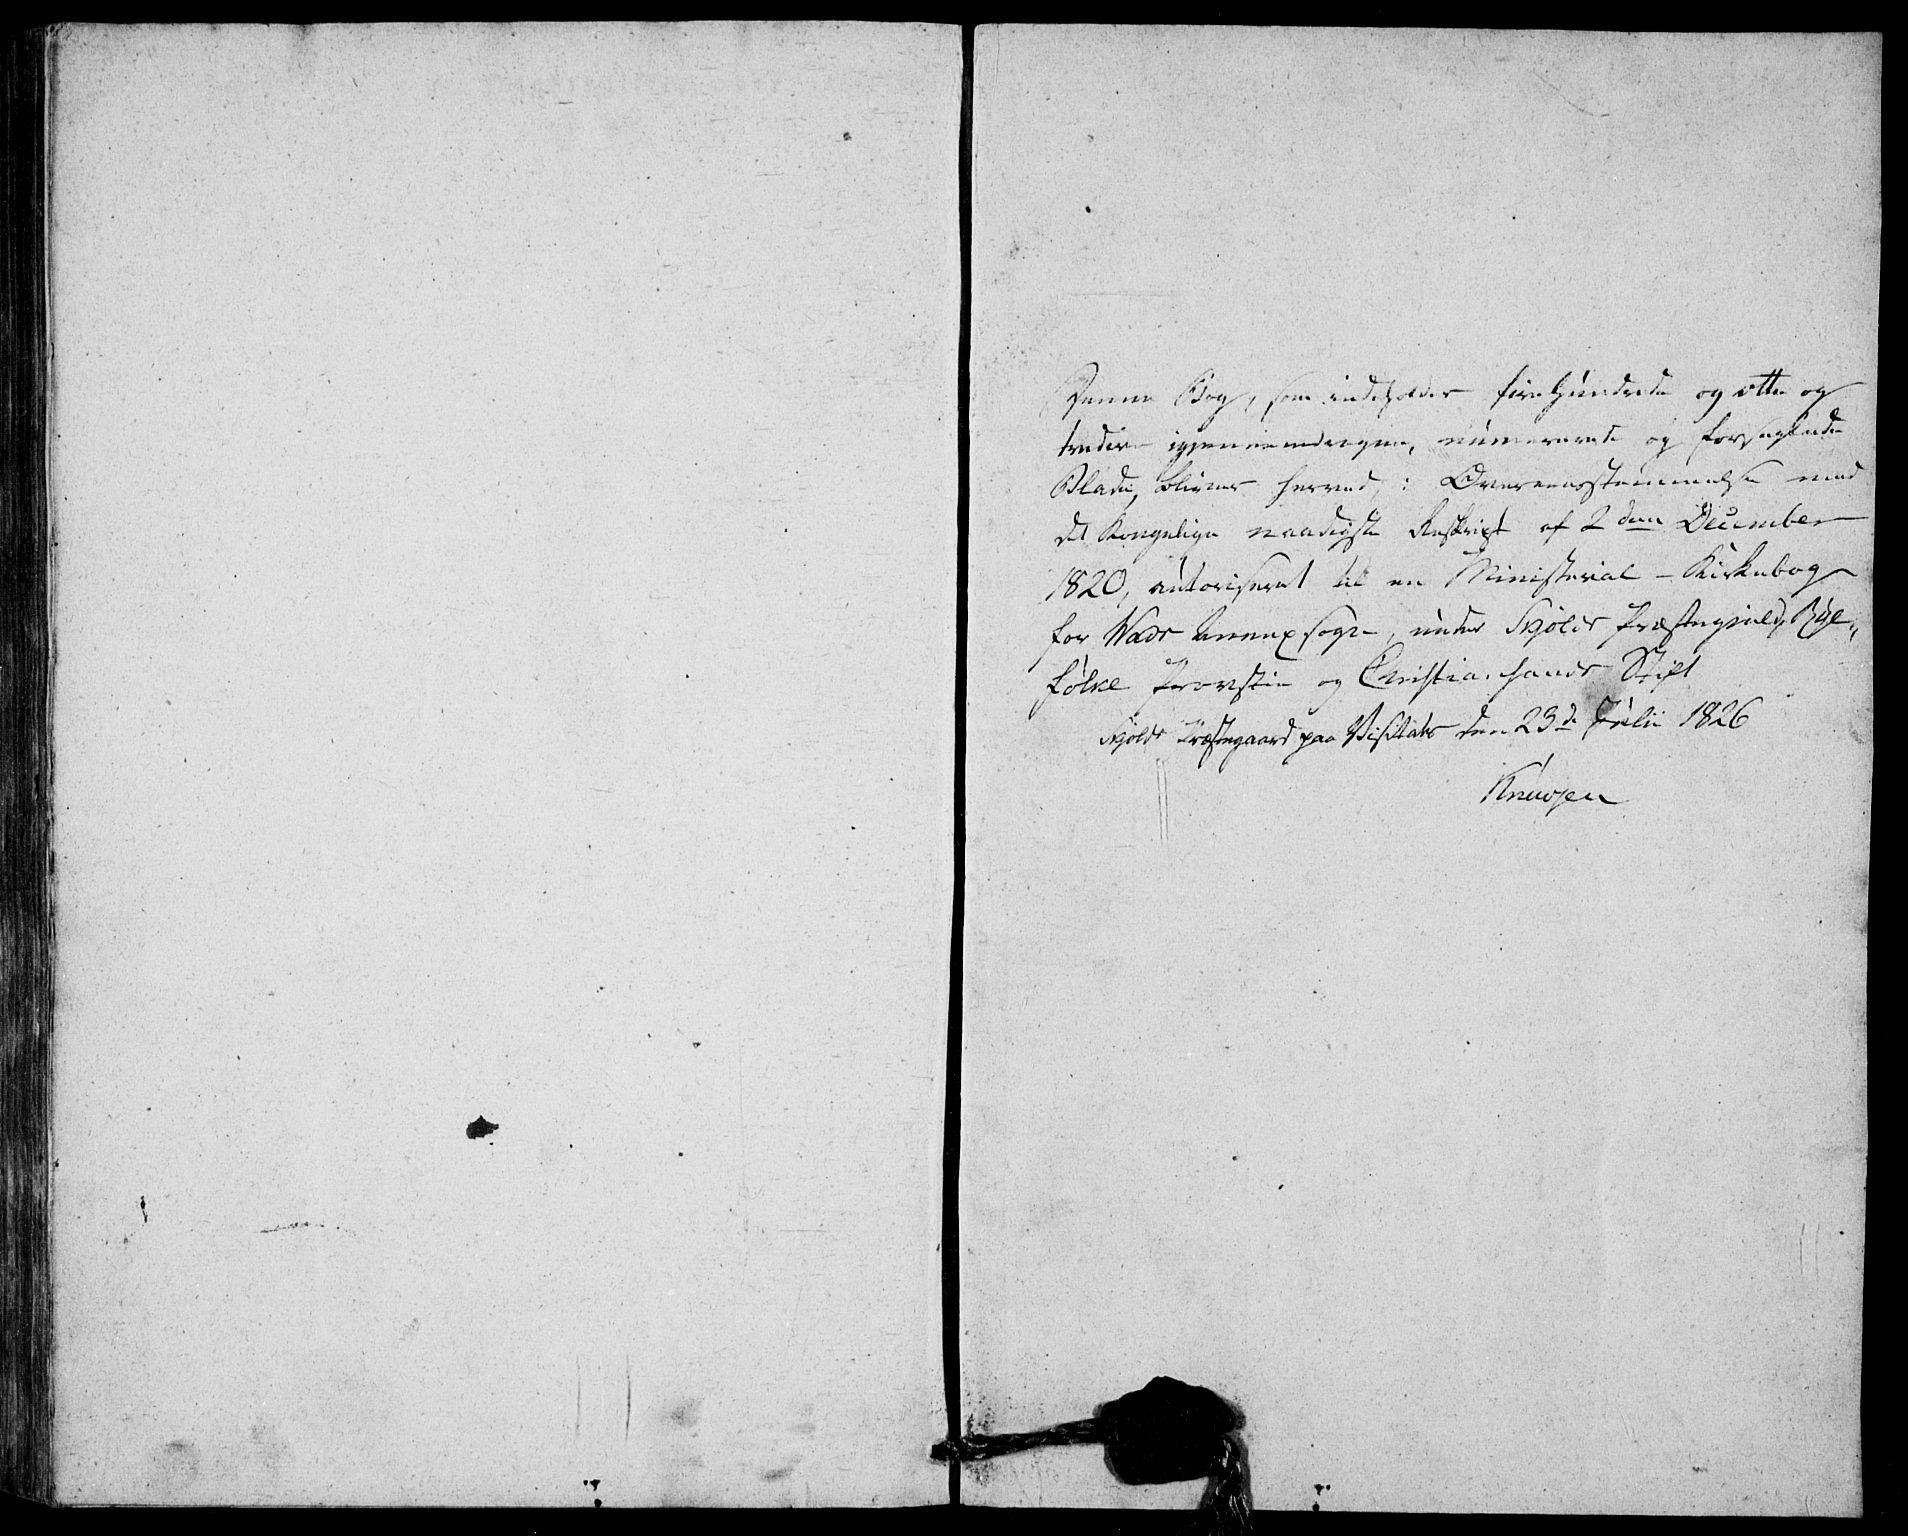 Denne Bog, som indeholder firehundrede og otte og
tredive igjennemdragne, numererede og forseglede
Blade, bliver herved, i Overeensstemmelse med
det Kongelige naadigste Reskript af 2den December
1820, autoriseret til en Ministerial-Kirkebog
for Wads Annexsogn, under Skjolds Præstegjeld, Rye„
fylke Provstie og Christiansands Stift
Skjolds Præstegaard paa Visitats den 23de Julii 1826